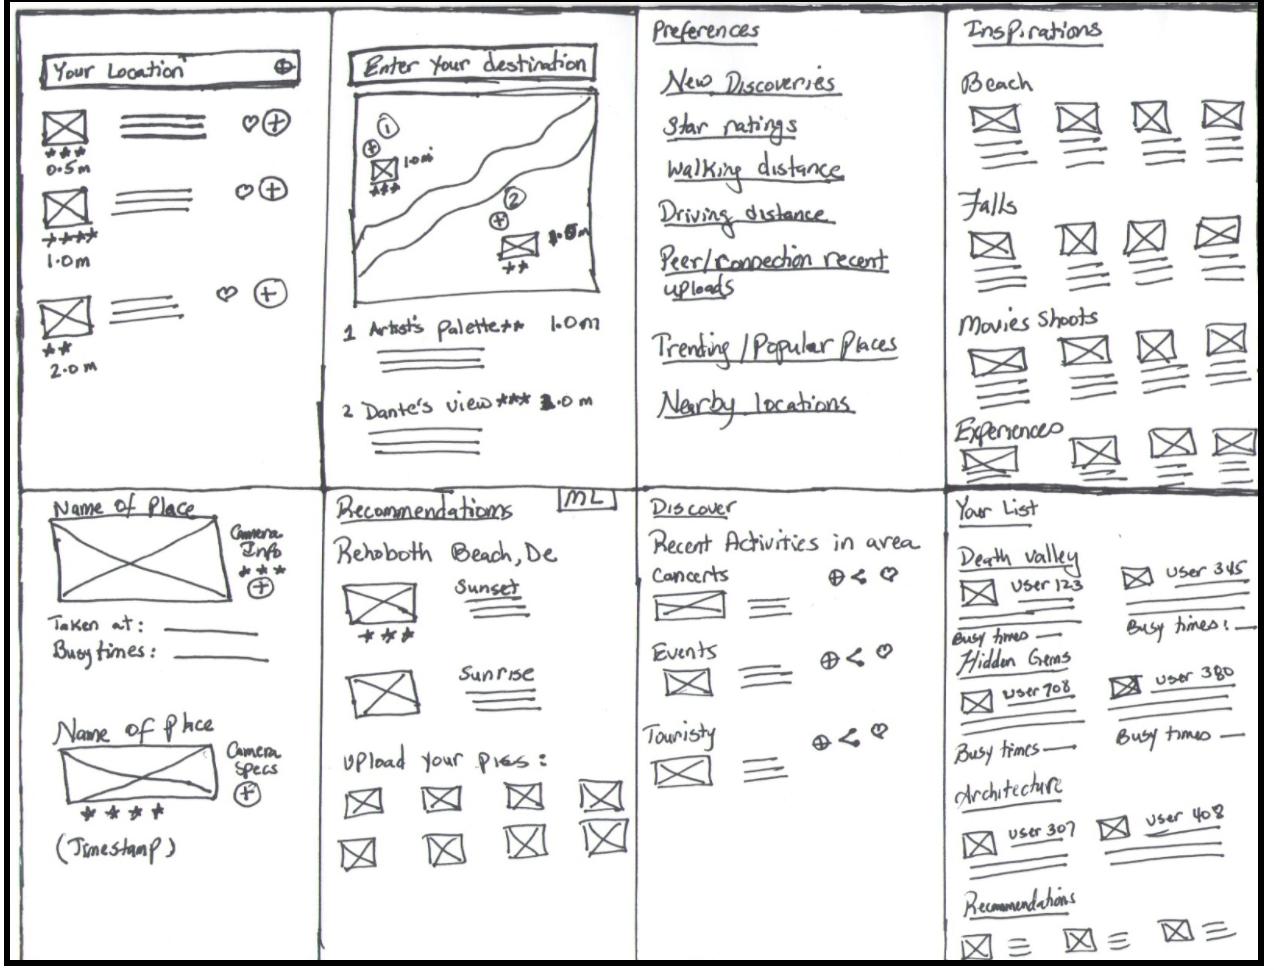 Your Location
***
0.5m
****
1.0m
**
2.0m
Enter Your destination
1
1.0m
***
2
**
1 Artist's palette ** 1.0m
2 Dante's view ***
Preferences
New Discoveries
Star ratings
Walking distance
Driving distance
Peer/connection recent
uploads
Trending / Popular Places
Nearby locations
Inspirations
Beach
Falls
Movies Shoots
Experiences
Name of Place
Camera
Info
***
Taken at:
Busy times:
Name of Place
Camera
Specs
****
(Timestamp)
Recommendations
ML
Rehoboth Beach, De
Sunset
***
Sunrise
Upload your pics:
Discover
Recent Activities in area
Concerts
Events
Touristy
Your List
Death valley
User 123
User 345
Busy times
Busy times:
Hidden Gems
User 708
User 380
Busy times
Busy times
Architecture
User 307
User 408
Recommendations